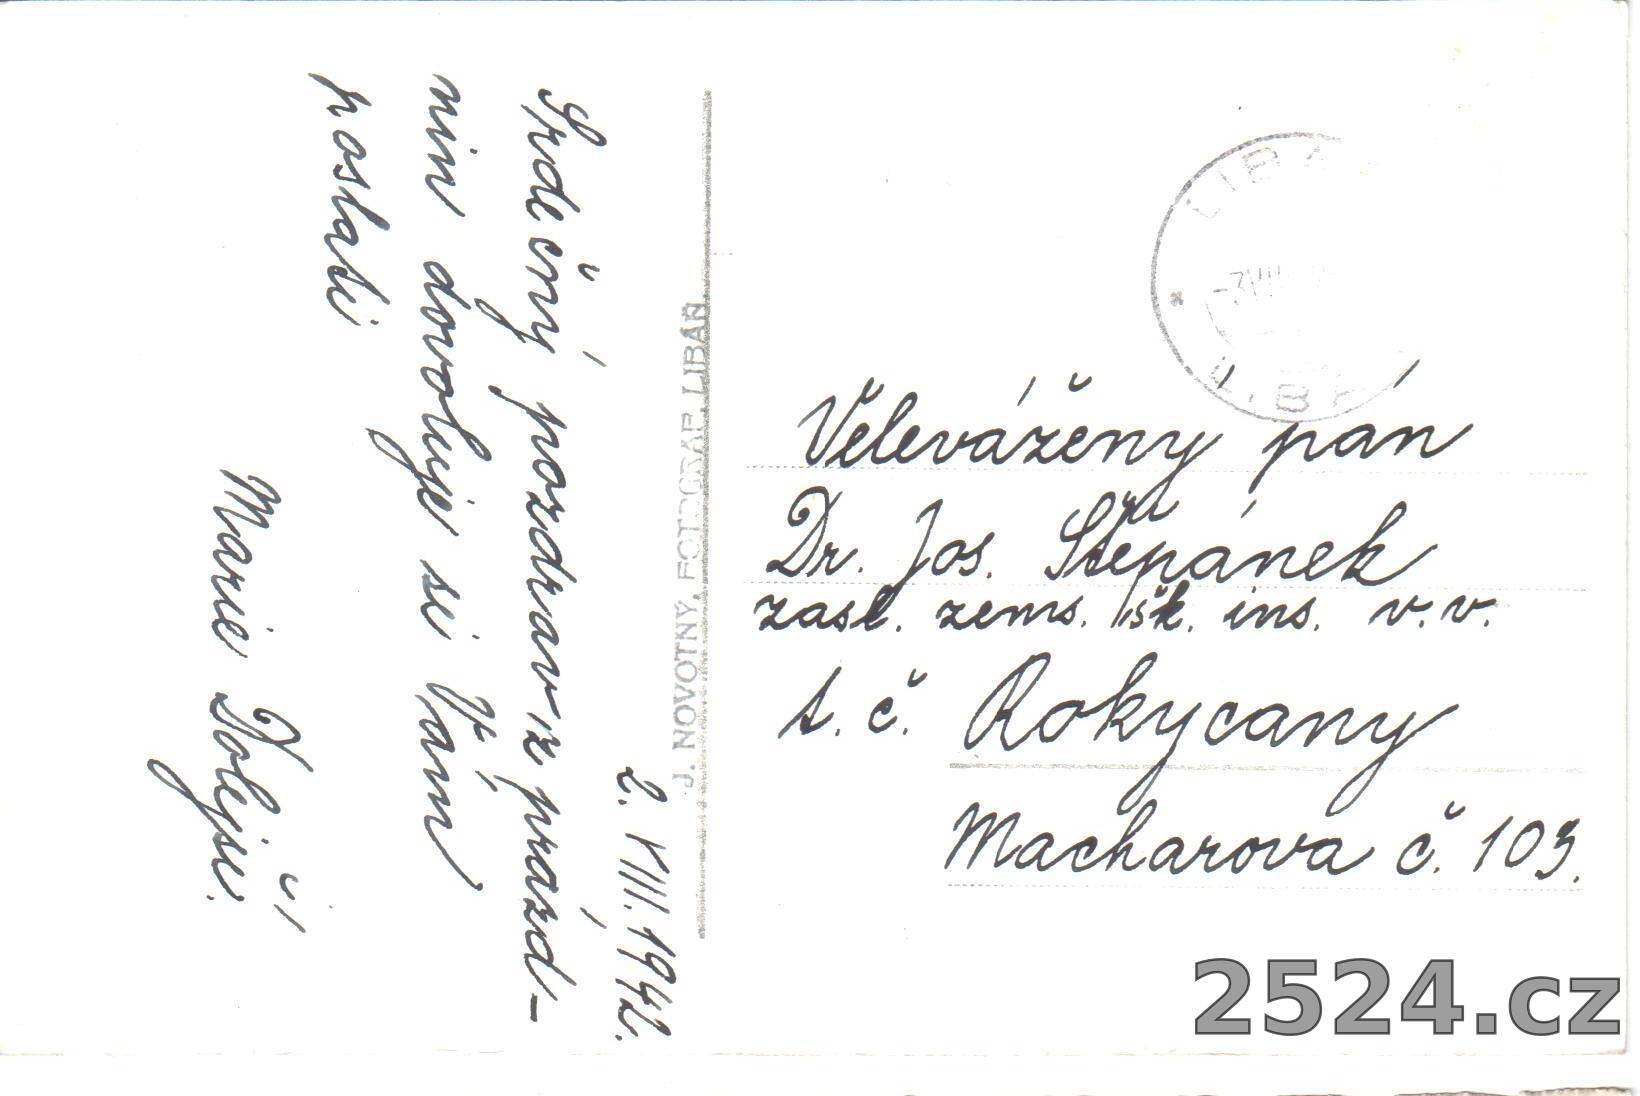 2. VIII. 1942.
Srdečný pozdrav z prázd-
nin dovoluje si Vám
poslati
Marie Dolejší.
J. NOVOTNÝ, FOTOGRAF, LIBÁŇ.
LIBÁ
-3.VIII
LIBA
Velevážený pán
Dr. Jos. Štěpánek
zasl. zems. šk. ins. v.v.
t. č. Rokycany
Macharova č. 103.
2524.cz